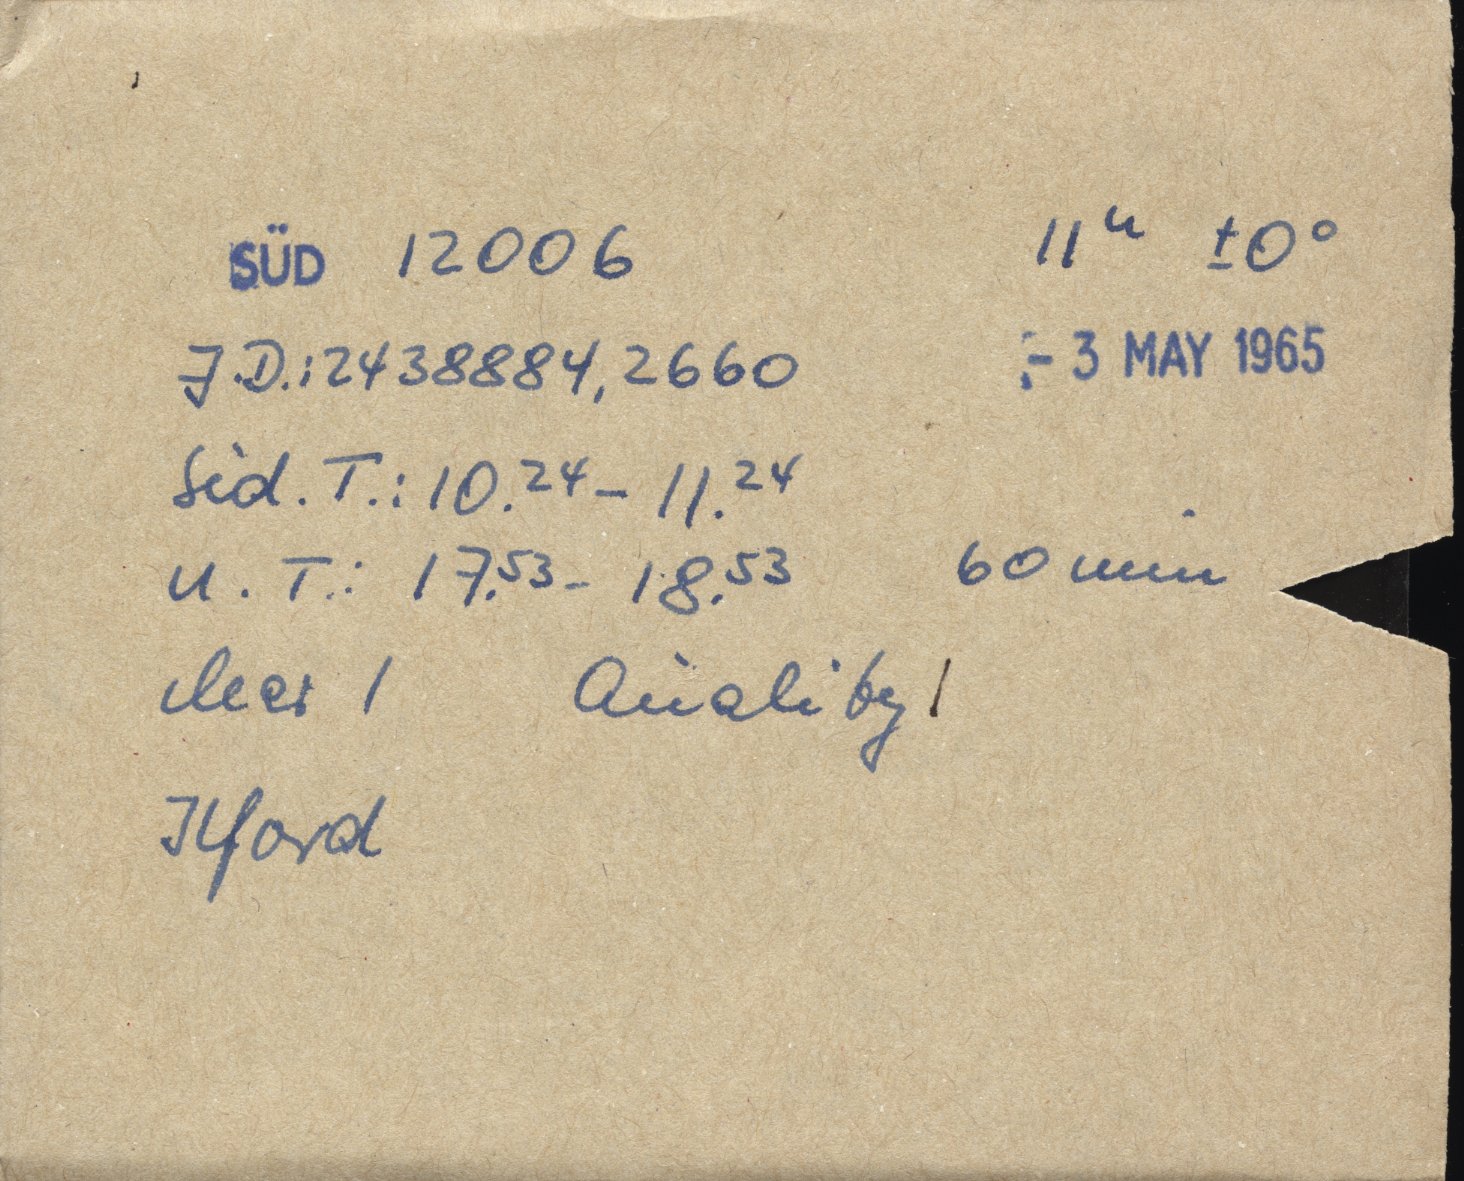 SÜD 12006 11h ±0°
J.D.: 2438884,2660 - 3 MAY 1965
Sid. T.: 10.24 - 11.24
U. T.: 17.53 - 18.53 60 min
clear 1 Quality 1
Ilford